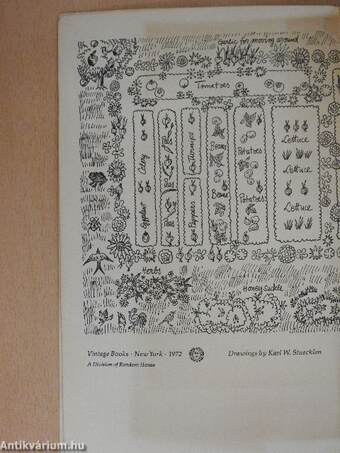 Garlic for moving around
Tomatoes
Celery
Eggplant
Peas
Peas
Peppers
Beans
Beans
Potatoes
Potatoes
Lettuce
Lettuce
Lettuce
Herbs
Honeysuckle
Vintage Books · New York · 1972
Drawings by Karl W. Stuecklen
A Division of Random House
Antikvárium.hu